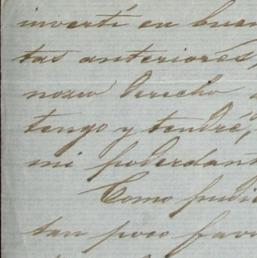 invertí en buen
tas anteriores,
nozco derecho a
tengo y tendré,
mi poderdant
Como pudi
tan poco favo